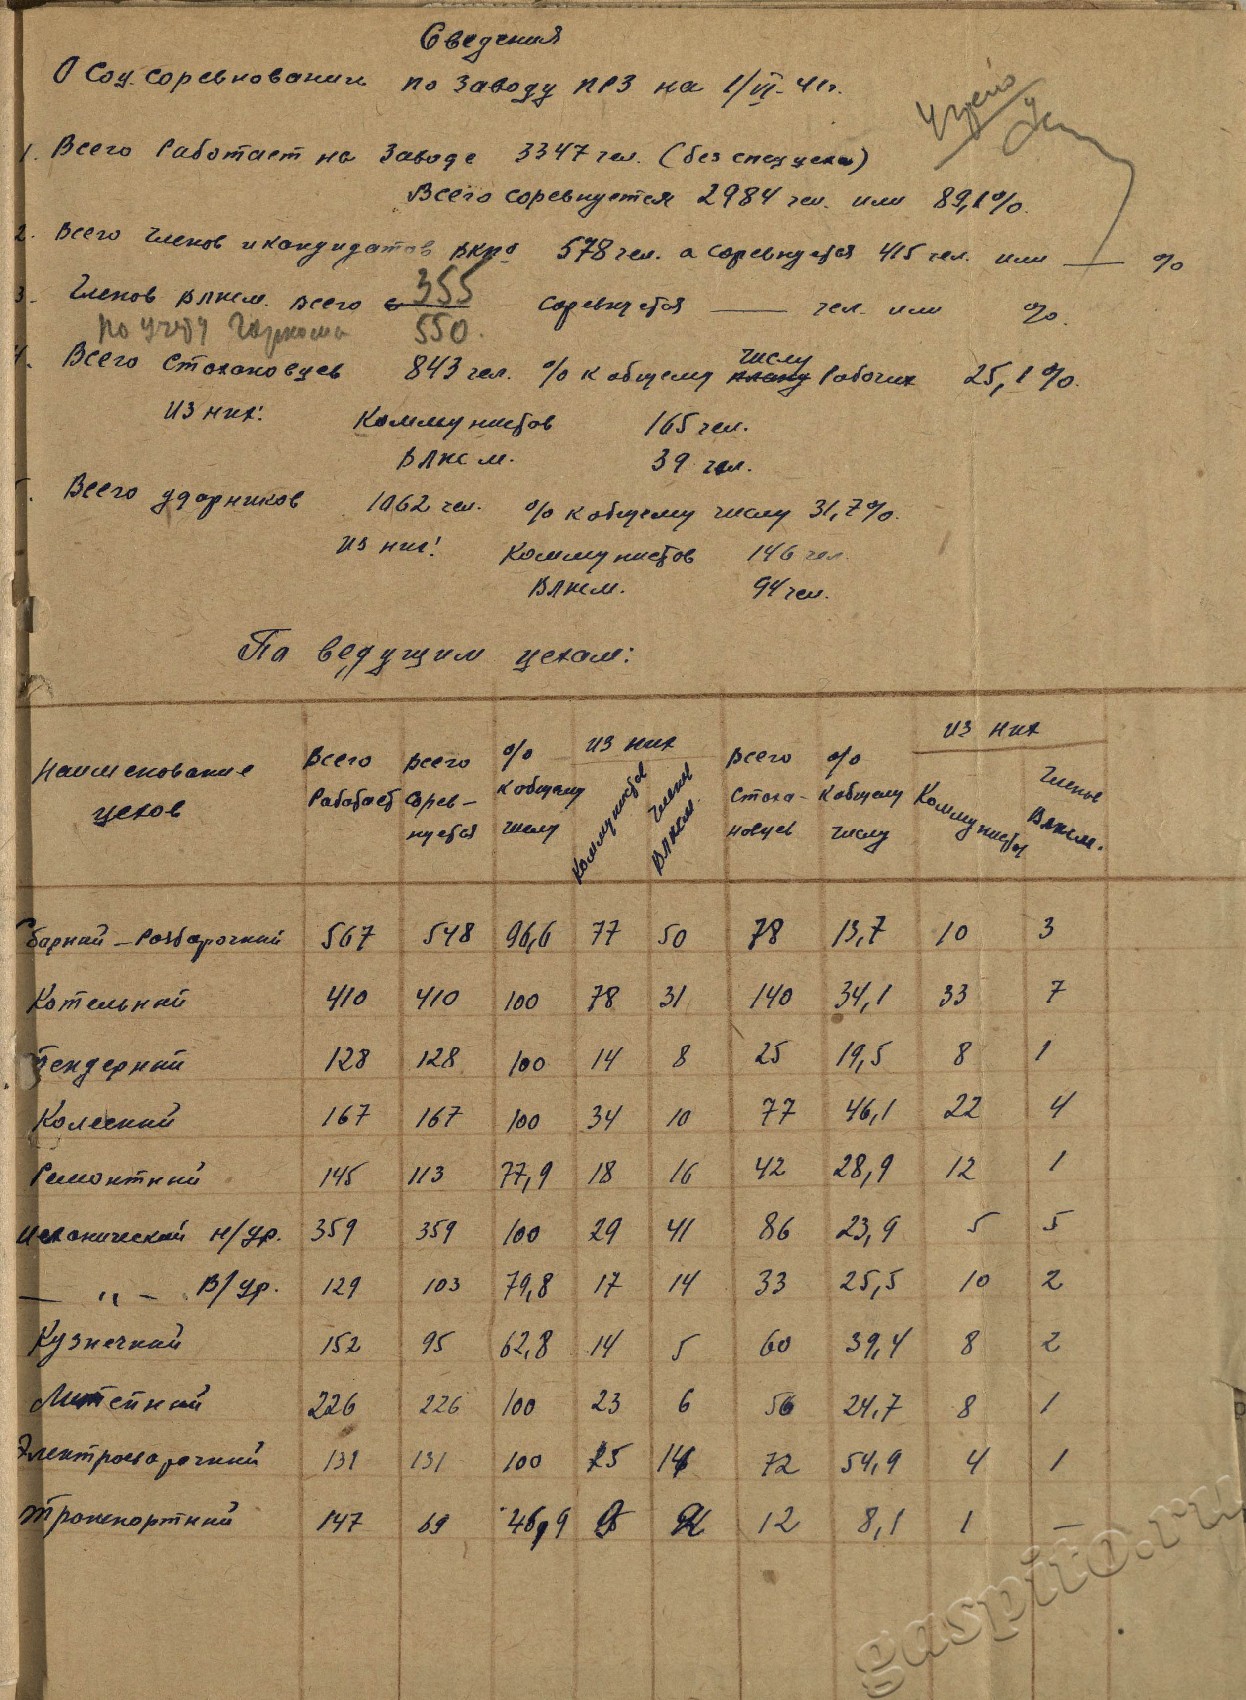 Сведения
О Соц. соревновании по заводу ПРЗ на 1/VI-41г.
1. Всего работает на заводе 3347 чел. (без спеццеха)
Всего соревнуется 2984 чел. или 89,1%.
2. Всего членов и кандидатов ВКПб 578 чел. а соревнуется 415 чел. или — %
3. Членов ВЛКСМ. всего 355 соревнуется — чел. или %.
по учету Горкома 550.
4. Всего Стахановцев 843 чел. % к общему числу рабочих 25,1%.
Из них: Коммунистов 165 чел.
ВЛКСМ. 39 чел.
5. Всего ударников 1062 чел. % к общему числу 31,7%.
Из них: Коммунистов 146 чел.
ВЛКСМ. 94 чел.
По ведущим цехам:
Наименование цехов Всего работает Всего сорев-нуется % к общему числу Из них Коммунистов Члены ВЛКСМ. Всего стаха-новцев % к общему числу Из них Коммунистов Членов ВЛКСМ.
Сборный-Разборочный 567 548 96,6 77 50 78 13,7 10 3
Котельный 410 410 100 78 31 140 34,1 33 7
Тендерный 128 128 100 14 8 25 19,5 8 1
Колесный 167 167 100 34 10 77 46,1 22 4
Ремонтный 145 113 77,9 18 16 42 28,9 12 1
Механический н/ур. 359 359 100 29 41 86 23,9 5 5
— „ — В/ур. 129 103 79,8 17 14 33 25,5 10 2
Кузнечный 152 95 62,8 14 5 60 39,4 8 2
Литейный 226 226 100 23 6 56 24,7 8 1
Электросварочный 131 131 100 25 14 72 54,9 4 1
Транспортный 147 69 46,9 12 8,1 1 —
gaspito.ru